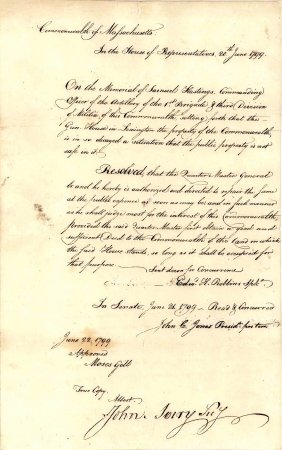 Commonwealth of Massachusetts.
In the House of Representatives, 20th June 1799.
On the Memorial of Samuel Hastings, Commanding
Officer of the Artillery of the 1st Brigade & third Division
of Militia of this Commonwealth setting forth that the
Gun House in Lexington the property of the Commonwealth,
is in so decayed a situation that the public property is not
safe in it.
Resolved, that the Quarter Master General
be and he hereby is authorized and directed to repair the same
at the public expence as soon as may be and in such manner
as he shall judge most for the interest of this Commonwealth,
provided the said Quarter Master first obtain a good and
sufficient Deed to the Commonwealth of the land on which
the said House stands, so long as it shall be occupied for
that purpose.
Sent down for Concurrence
Edwd. H. Robbins Spkr.
In Senate, June 21. 1799 - Read & Concurred
John C. Jones Presidt. pro tem
June 22, 1799
Approved
Moses Gill
True Copy,
Attest.
John Avery Secy